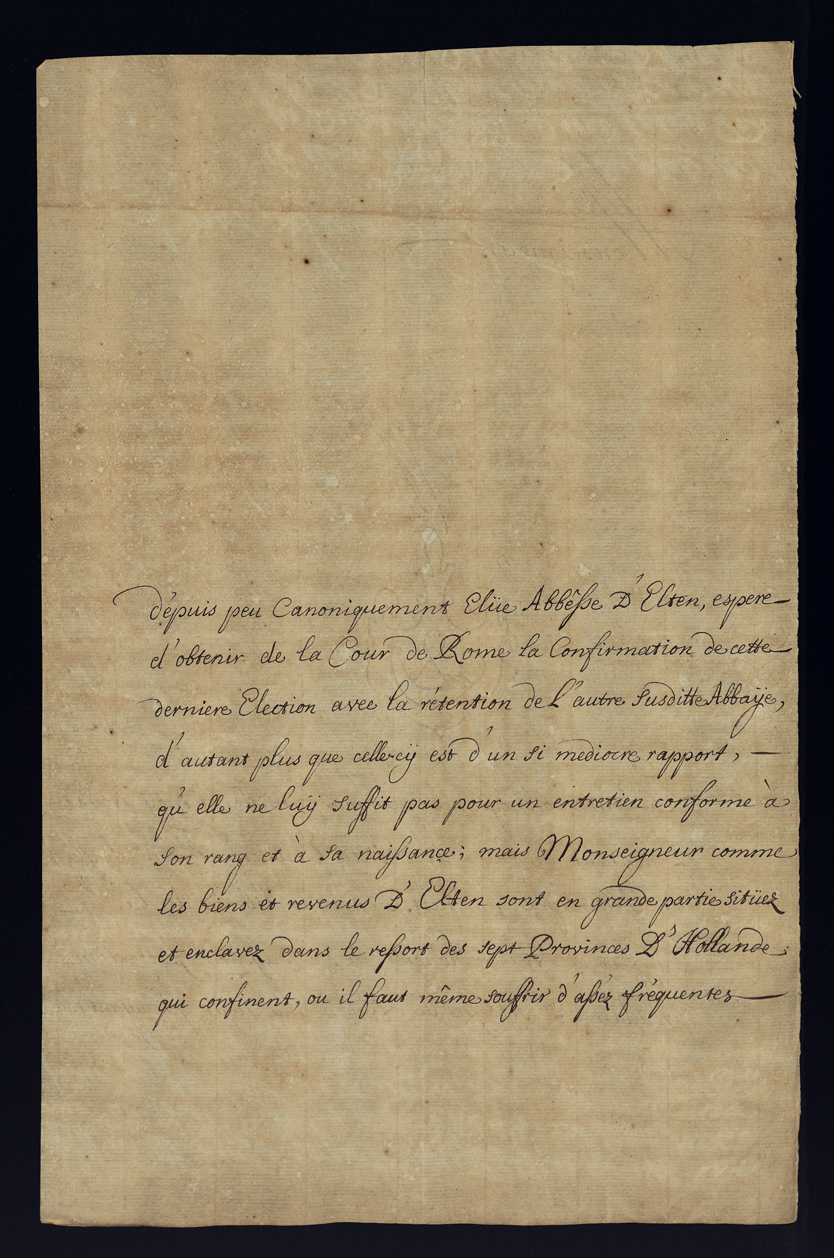 dépuis peu Canoniquement Elüe Abbêsse D'Elten, espere
d'obtenir de la Cour de Rome la Confirmation de cette
derniere Election avec la rétention de l'autre susditte Abbaÿe,
d'autant plus que celle cÿ est d'un si mediocre rapport,
qu'elle ne luÿ suffit pas pour un entretien conforme à
son rang et à sa naissance; mais Monseigneur comme
les biens et revenus D'Elten sont en grande partie sitüez
et enclavez dans le ressort des sept Provinces D'Hollande
qui confinent, ou il faut même souffrir d'assez fréquentes